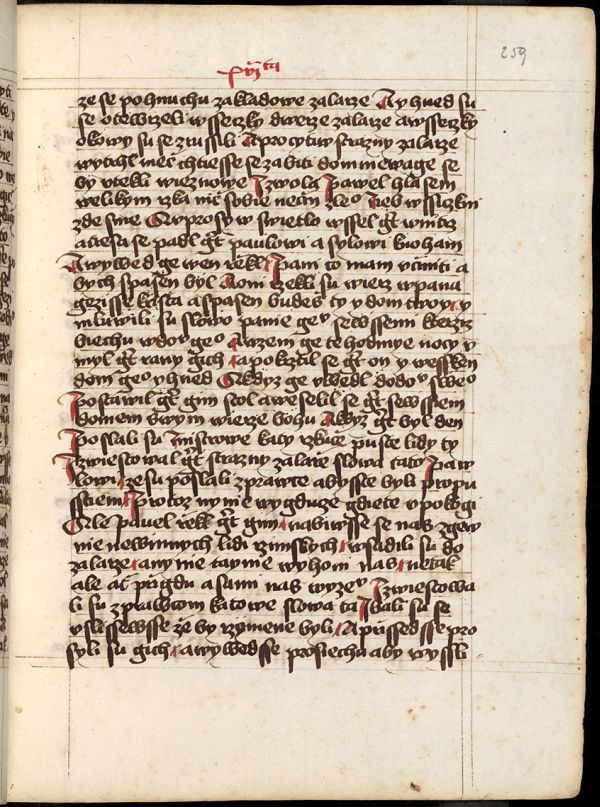 259
xvi ta
ze se pohnuchu zakladowe zalarze A y hned su
se otewrzeli wssetzky dwerze zalarze a wssetzky
okowy su se zrussili A procytiw strazny zalarze
wytahl meč chtiesse se zabiti domniewage se
by vtekli wieznowe I zwola pawel hlasem
welikym rzka nič sobie nečin zleo neb wssiczkni
zde sme A poprosyw swietlo wssel gt wnitrz
a třesa se padl gt paulowi a sylowi k noham
A wywed ge wen rzekl Pani to mam vciniti a
bych spasen byl A oni rzekli su wierz w pana
gezisse krista a spasen budeš ty y dom twoy y
mluwili su slowo panie geu se wssemi kterziz
biechu w domu geo A wzem ge te hodiny nocy y
myl gt rany gich a pokrztil se gt on y wesskeren
dom geo y hned A kdyz ge vwedl do domu sweo
postawil gt gim stol a weselil se gt se wssiem
domem swym wierze bohu A kdyz gt byl den
poslali su mistrowe katy rzkuce puste lidy ty
I zwiestowal gt strazny zalarze slowa tato paw
lowi ze su poslali zprawce abysste byli propu
sstieni Protoz nynie wygduce gdiete v pokogi
Ale pawel rzekl gt gim nabiwsse se nas zgew
nie newinnych lidi rzimskych wsadili su do
zalarze a nynie taynie wyhoni nas ne tak
ale ať prigdu a sami nas wyzeu I zwiestowa
li su zprawcom katowe slowa ta I bali su se
vslissewsse že by rzymene byli A prissedsse pro
syli su gich a wywedsse prosiechu aby wyssli